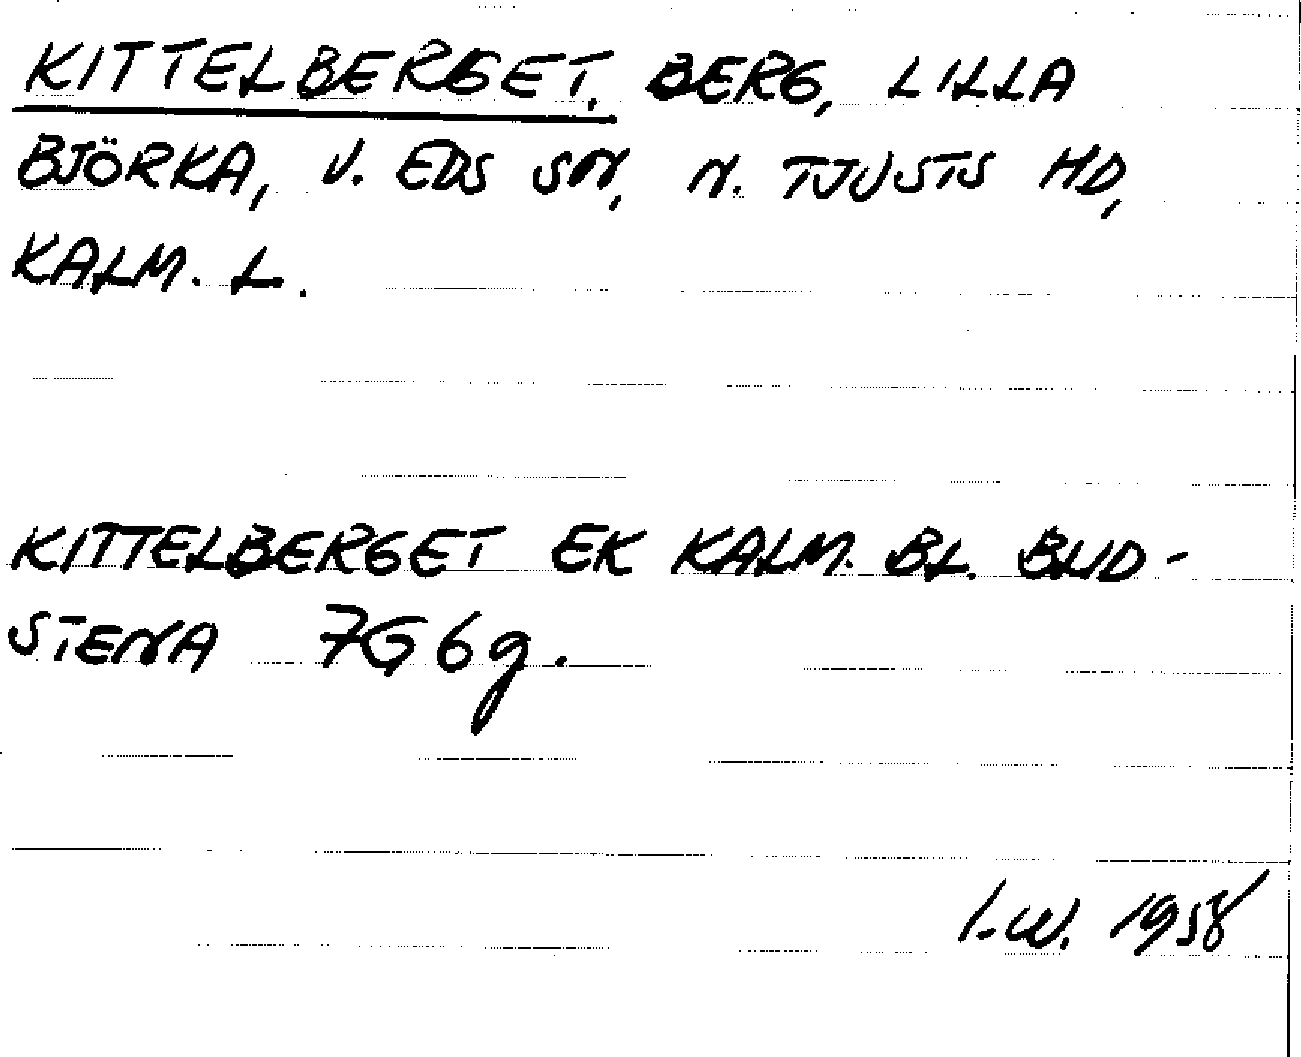 KITTELBERGET, BERG, LILLA
BJÖRKA, V. EDS SN, N. TJUSTS HD,
KALM. L.
KITTELBERGET EK KALM. BL. BLID-
STENA 7G6g.
I.W. 1958